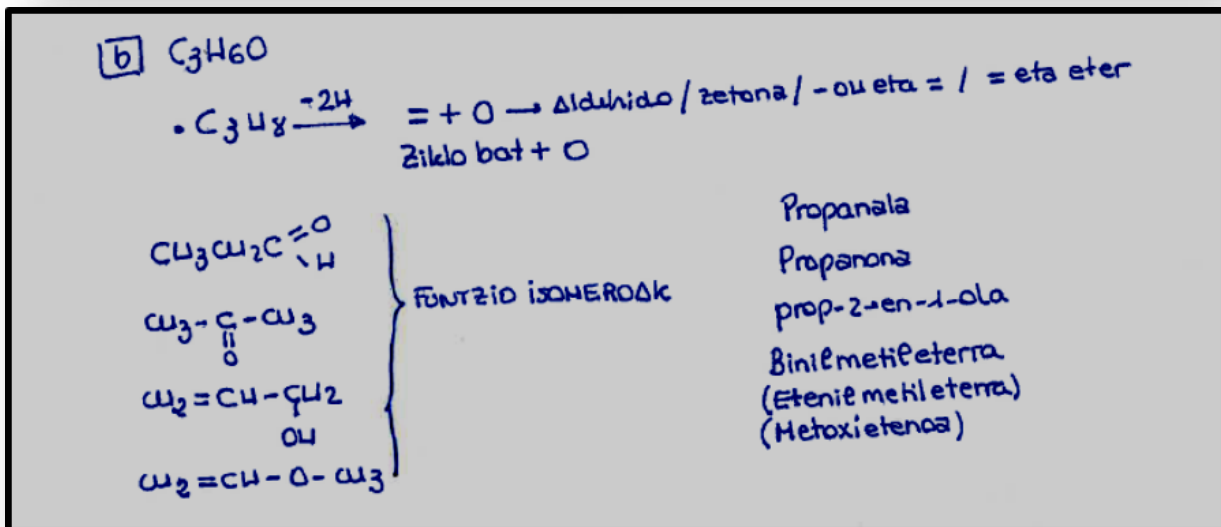 b C3H6O
• C3H8 -2H → = + O → Aldehido / zetona / -OH eta = / = eta eter
Ziklo bat + O
CH3CH2C=O
\H
CH3-C-CH3
||
O
CH2=CH-CH2
OH
CH2=CH-O-CH3
FUNTZIO ISOMEROAK
Propanala
Propanona
prop-2-en-1-ola
Binilmetileterra
(Etenilmetileterra)
(Metoxietenoa)